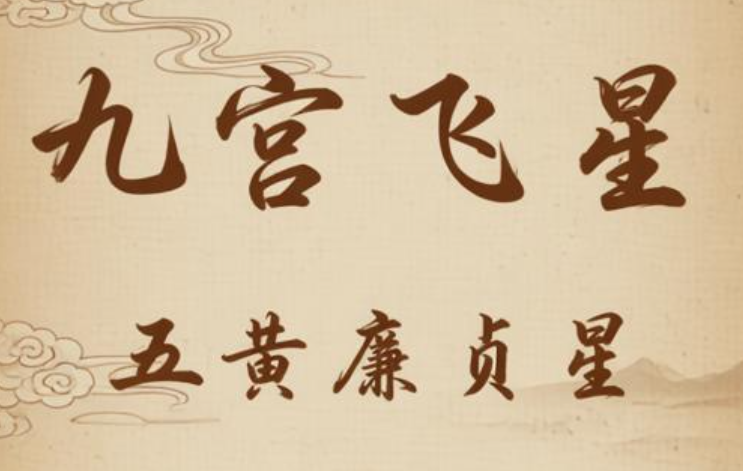 九宫飞星
五黄廉贞星